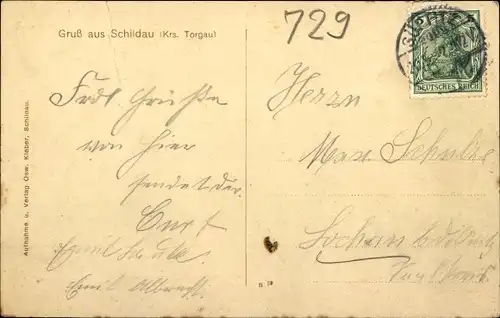 Gruß aus Schildau (Krs. Torgau)
729
DEUTSCHES REICH
Aufnahme u. Verlag Osw. Kleber, Schildau.
Frdl Grüße
von hier
sendet dir
Curt
Emil Albrecht
Herrn
Max Schulze
Lochau